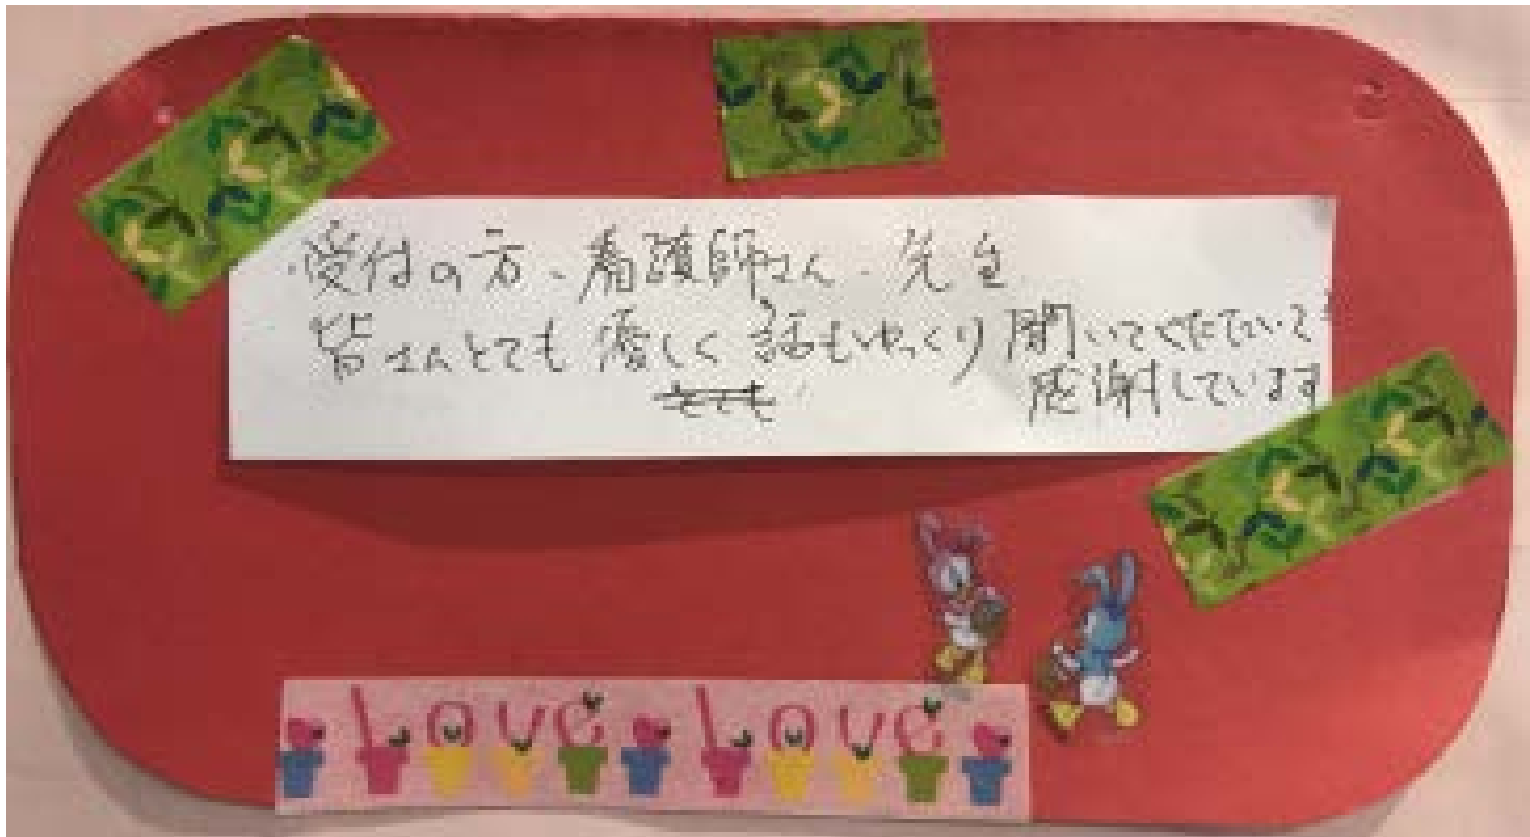 ・受付の方、看護師さん、先生
皆さんとても優しく話もゆっくり聞いてくださいて
とても
感謝しています
Love Love